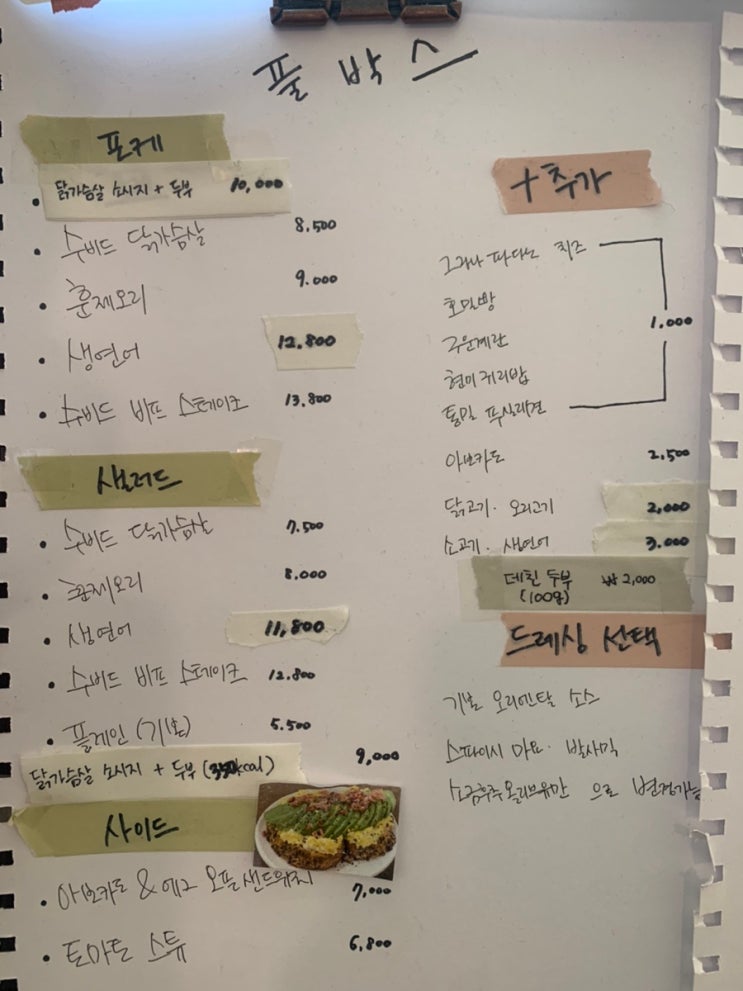 풀 박스
포케
닭가슴살 소시지 + 두부 10,000
수비드 닭가슴살 8.500
훈제오리 9.000
생연어 12,800
수비드 비프 스테이크 13.800
샐러드
수비드 닭가슴살 7.500
훈제오리 8.000
생연어 11,800
수비드 비프 스테이크 12.800
플레인 (기본) 5.500
닭가슴살 소시지 + 두부 (350kcal) 9,000
사이드
아보카도 & 에그 오픈샌드위치 7,000
토마토 스튜 6,800
+ 추가
그라나 파다노 치즈
호밀빵
구운계란
현미귀리밥
통밀 푸실리면
1.000
아보카도 2,500
닭고기 · 오리고기 2,000
소고기 · 생연어 3.000
데친 두부 ₩2,000
(100g)
드레싱 선택
기본 오리엔탈 소스
스파이시 마요 · 발사믹
소금후추올리브유만 으로 변경가능